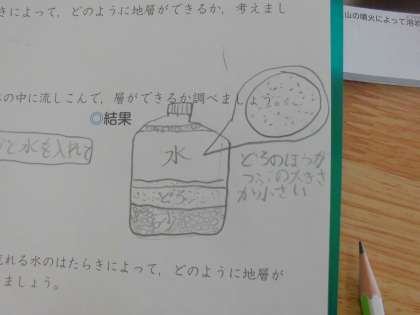 山の噴火によって溶岩
きによって，どのように地層ができるか，考えまし
の中に流しこんで，層ができるか調べましょう。
◎結果
と水を入れて
水
どろ
どろのほうが
つぶの大きさ
が小さい
流れる水のはたらきによって，どのように地層が
ましょう。